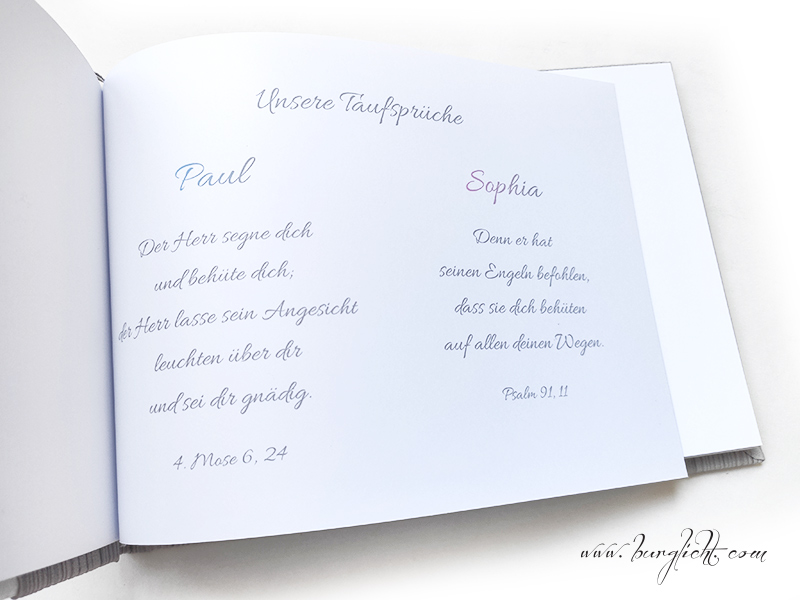 Unsere Taufsprüche
Paul
Der Herr segne dich
und behüte dich;
der Herr lasse sein Angesicht
leuchten über dir
und sei dir gnädig.
4. Mose 6, 24
Sophia
Denn er hat
seinen Engeln befohlen,
dass sie dich behüten
auf allen deinen Wegen.
Psalm 91, 11
www.burglicht.com